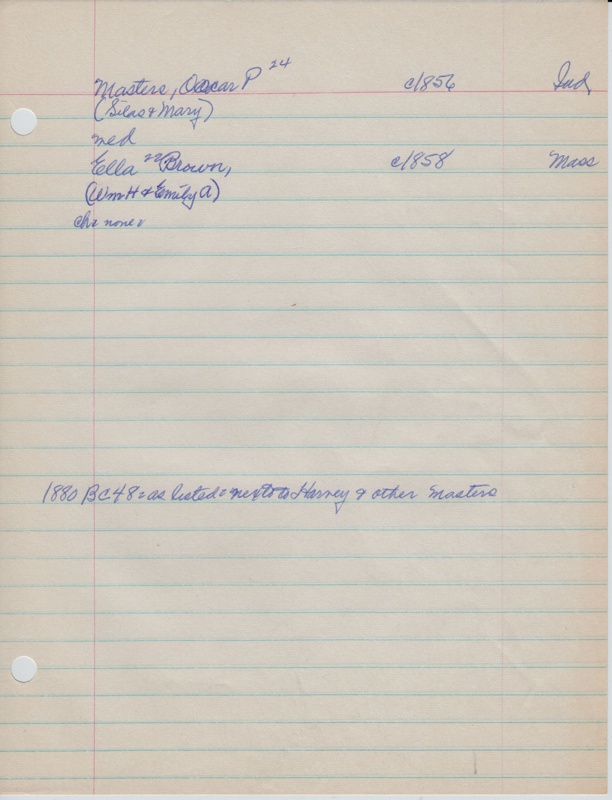 Masters, Oscar P 24 c/1856 Ind,
(Silas & Mary)
med
Ella 22 Brown, c/1858 Mass
(Wm H & Emily A)
ch: none
1880 BC48 = as listed = next to Harvey & other Masters